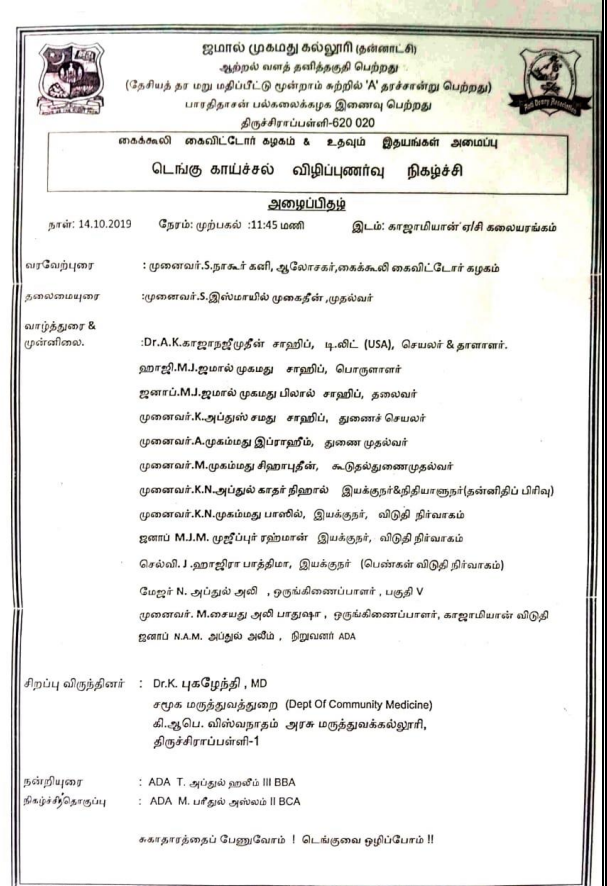 ஜமால் முகமது கல்லூரி (தன்னாட்சி)
ஆற்றல் வளத் தனித்தகுதி பெற்றது
(தேசியத் தர மறு மதிப்பீட்டு மூன்றாம் சுற்றில் 'A' தரச்சான்று பெற்றது)
பாரதிதாசன் பல்கலைக்கழக இணைவு பெற்றது
திருச்சிராப்பள்ளி-620 020
Anti Dowry Association
கைக்கூலி கைவிட்டோர் கழகம் & உதவும் இதயங்கள் அமைப்பு
டெங்கு காய்ச்சல் விழிப்புணர்வு நிகழ்ச்சி
அழைப்பிதழ்
நாள்: 14.10.2019 நேரம்: முற்பகல் :11:45 மணி இடம்: காஜாமியான் ஏ/சி கலையரங்கம்
வரவேற்புரை : முனைவர்.S.நாகூர் கனி, ஆலோசகர்,கைக்கூலி கைவிட்டோர் கழகம்
தலைமையுரை :முனைவர்.S.இஸ்மாயில் முகைதீன் ,முதல்வர்
வாழ்த்துரை &
முன்னிலை. :Dr.A.K.காஜாநஜீமுதீன் சாஹிப், டி.லிட் (USA), செயலர் & தாளாளர்.
ஹாஜி.M.J.ஜமால் முகமது சாஹிப், பொருளாளர்
ஜனாப்.M.J.ஜமால் முகமது பிலால் சாஹிப், தலைவர்
முனைவர்.K.அப்துஸ் சமது சாஹிப், துணைச் செயலர்
முனைவர்.A.முகம்மது இப்ராஹீம், துணை முதல்வர்
முனைவர்.M.முகம்மது சிஹாபுதீன், கூடுதல்துணைமுதல்வர்
முனைவர்.K.N.அப்துல் காதர் நிஹால் இயக்குநர்&நிதியாளுநர்(தன்னிதிப் பிரிவு)
முனைவர்.K.N.முகம்மது பாஸில், இயக்குநர், விடுதி நிர்வாகம்
ஜனாப் M.J.M. முஜீப்புர் ரஹ்மான் இயக்குநர், விடுதி நிர்வாகம்
செல்வி. J .ஹாஜிரா பாத்திமா, இயக்குநர் (பெண்கள் விடுதி நிர்வாகம்)
மேஜர் N. அப்துல் அலி , ஒருங்கிணைப்பாளர் , பகுதி V
முனைவர். M.சையது அலி பாதுஷா , ஒருங்கிணைப்பாளர், காஜாமியான் விடுதி
ஜனாப் N.A.M. அப்துல் அலீம் , நிறுவனர் ADA
சிறப்பு விருந்தினர் : Dr.K. புகழேந்தி , MD
சமூக மருத்துவத்துறை (Dept Of Community Medicine)
கி.ஆபெ. விஸ்வநாதம் அரசு மருத்துவக்கல்லூரி,
திருச்சிராப்பள்ளி-1
நன்றியுரை : ADA T. அப்துல் ஹலீம் III BBA
நிகழ்ச்சிதொகுப்பு : ADA M. பரீதுல் அஸ்லம் II BCA
சுகாதாரத்தைப் பேணுவோம் ! டெங்குவை ஒழிப்போம் !!